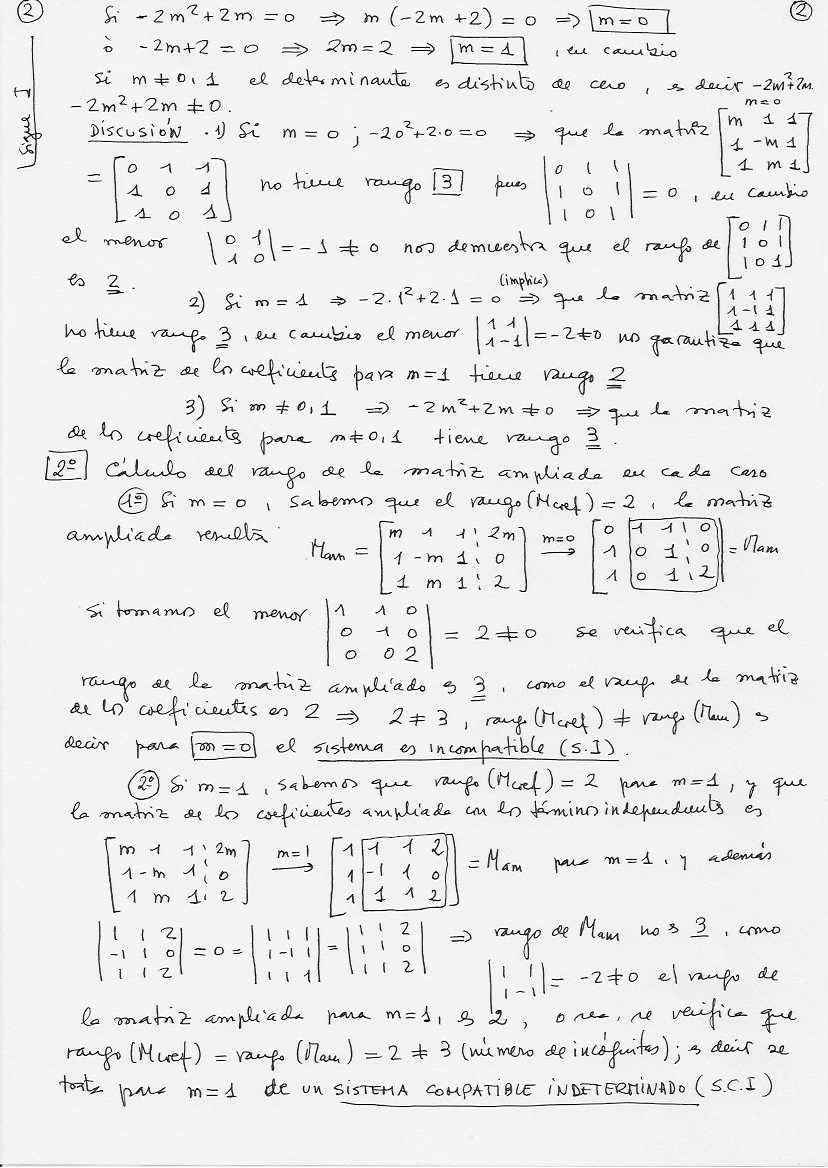 ② ②
Sigue I
Si -2m²+2m=0 ⇒ m(-2m+2)=0 ⇒ m=0
ò -2m+2=0 ⇒ 2m=2 ⇒ m=1, en cambio
si m≠0,1 el determinante es distinto de cero, es decir -2m²+2m
-2m²+2m≠0.
DISCUSIÓN. 1) Si m=0; -2·0²+2·0=0 ⇒ que la matriz m=0 [m 1 1; 1 -m 1; 1 m 1]
= [0 1 1; 1 0 1; 1 0 1] no tiene rango 3 pues |0 1 1; 1 0 1; 1 0 1| = 0, en cambio
el menor |0 1; 1 0| = -1 ≠ 0 nos demuestra que el rango de [0 1 1; 1 0 1; 1 0 1]
es 2.
2) Si m=1 ⇒ -2·1²+2·1=0 (implica) ⇒ que la matriz [1 1 1; 1 -1 1; 1 1 1]
no tiene rango 3, en cambio el menor |1 1; 1 -1| = -2≠0 nos garantiza que
la matriz de los coeficientes para m=1 tiene rango 2
3) Si m≠0,1 ⇒ -2m²+2m≠0 ⇒ que la matriz
de los coeficientes para m≠0,1 tiene rango 3.
2º Cálculo del rango de la matriz ampliada en cada caso
1º Si m=0, sabemos que el rango(Mcoef)=2, la matriz
ampliada resulta Mam = [m 1 1 ¦ 2m; 1 -m 1 ¦ 0; 1 m 1 ¦ 2] m=0 → [0 1 1 ¦ 0; 1 0 1 ¦ 0; 1 0 1 ¦ 2] = Mam
Si tomamos el menor |1 1 0; 0 1 0; 0 0 2| = 2≠0 se verifica que el
rango de la matriz ampliado es 3, como el rango de la matriz
de los coeficientes es 2 ⇒ 2≠3, rang(Mcoef) ≠ rango(Mam) es
decir para m=0 el sistema es incompatible (S.I).
2º Si m=1, sabemos que rango(Mcoef)=2 para m=1, y que
la matriz de los coeficientes ampliada con los término independients es
[m 1 1 ¦ 2m; 1 -m 1 ¦ 0; 1 m 1 ¦ 2] m=1 → [1 1 1 2; 1 -1 1 0; 1 1 1 2] = Mam para m=1, y además
|1 1 2; -1 1 0; 1 1 2| = 0 = |1 1 1; 1 -1 1; 1 1 1| = |1 1 2; 1 1 0; 1 1 2| ⇒ rango de Mam no es 3, como
|1 1; 1 -1| = -2≠0 el rango de
la matriz ampliada para m=1, es 2, o sea, se verifica que
rango(Mcoef) = rango(Mam) = 2 ≠ 3 (número de incógnitas); es decir se
trata para m=1 de un SISTEMA COMPATIBLE INDETERMINADO (S.C.I)